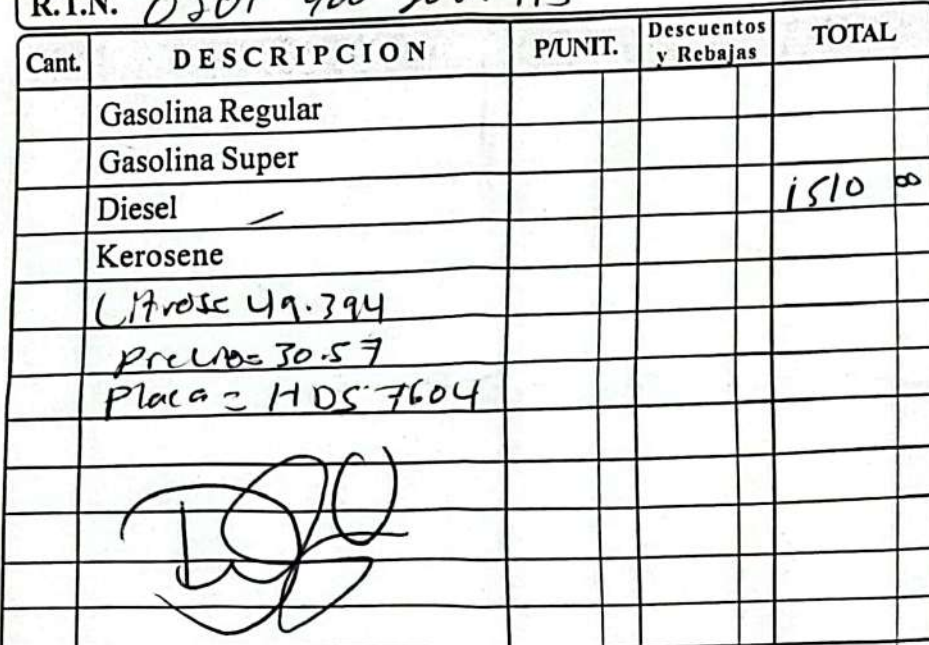 R.T.N.
Cant. DESCRIPCION P/UNIT. Descuentos y Rebajas TOTAL
Gasolina Regular
Gasolina Super
Diesel 1510 00
Kerosene
Litros= 49.394
precio= 30.57
Placa = HDS 7604